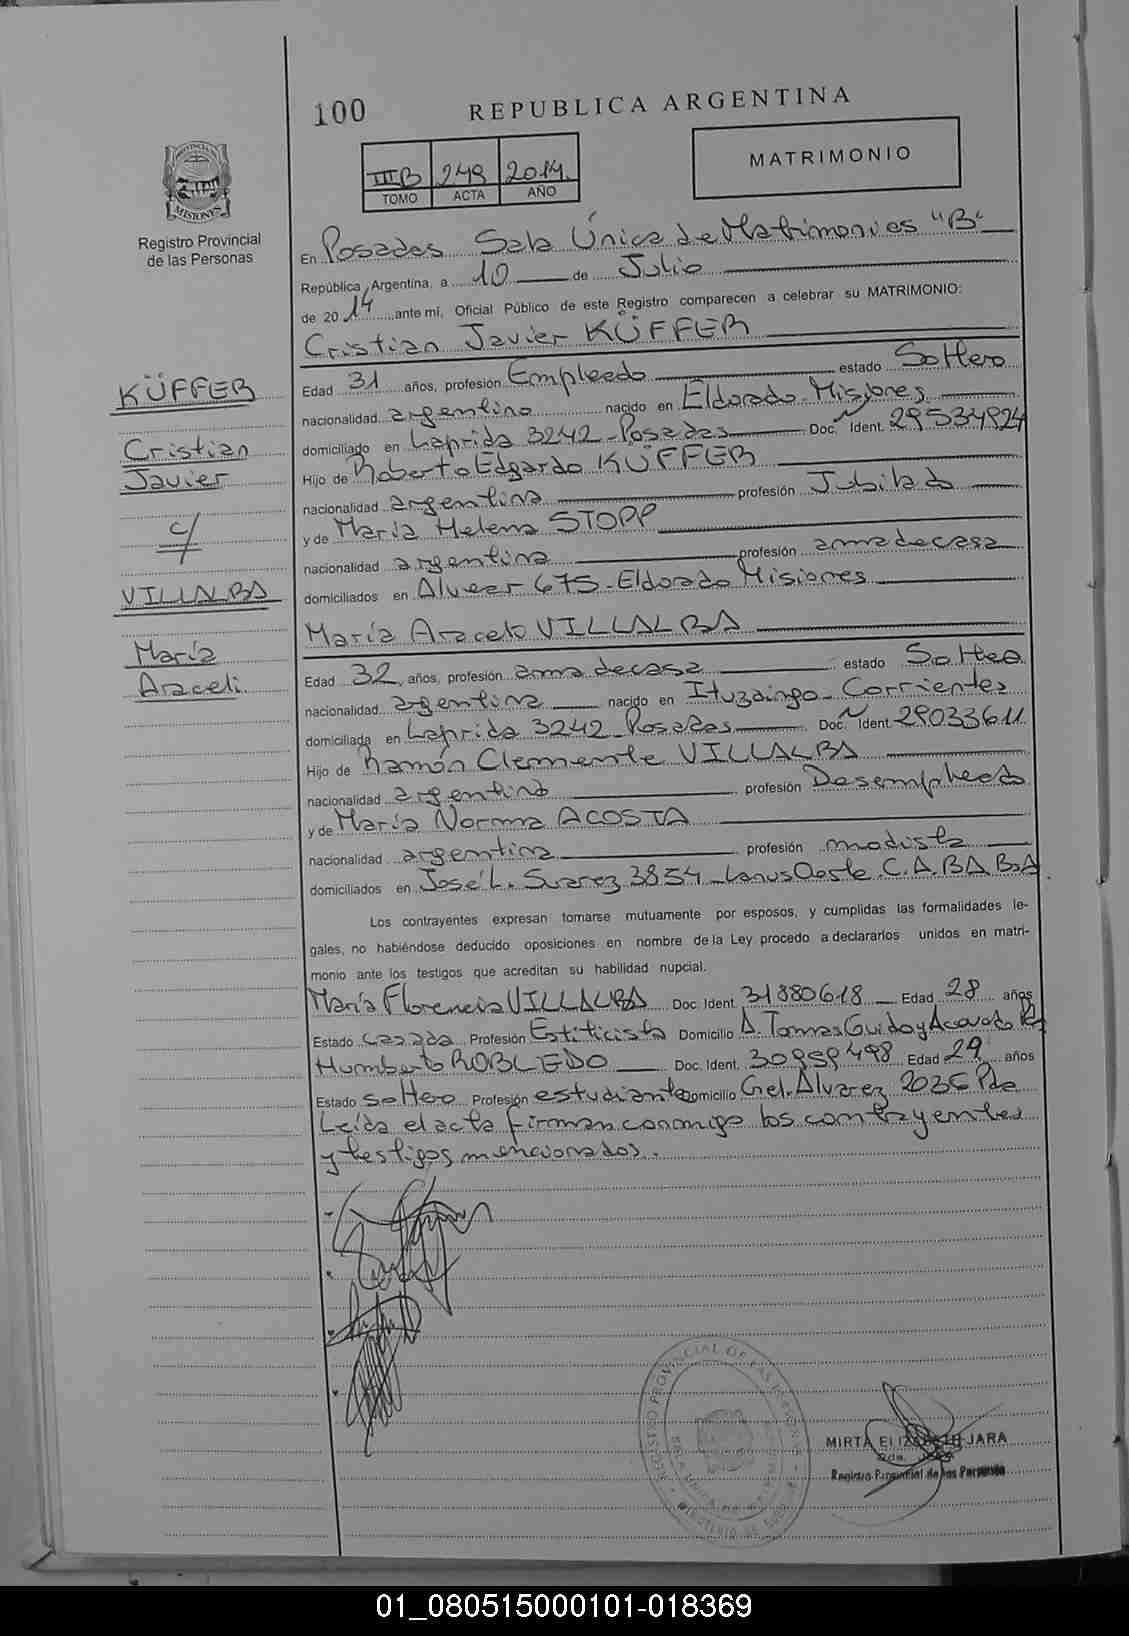 100
REPUBLICA ARGENTINA
IIIB 249 2014.
TOMO ACTA AÑO
MATRIMONIO
PROVINCIA DE
MISIONES
Registro Provincial
de las Personas
En Posadas Sala Única de Matrimonios "B"
República Argentina, a 10 de Julio
de 2014 ante mí, Oficial Público de este Registro comparecen a celebrar su MATRIMONIO:
Cristian Javier KÜFFER
Edad 31 años, profesión Empleado estado Soltero
nacionalidad argentino nacido en Eldorado-Misiones
domiciliado en Laprida 3242-Posadas Doc. Ident. 29534924
Hijo de Roberto Edgardo KÜFFER
nacionalidad argentina profesión Jubilado
y de María Helena STOPP
nacionalidad argentina profesión ama de casa
domiciliados en Alvear 675-Eldorado Misiones
KÜFFER
Cristian
Javier
c/
VILLALBA
María
Araceli
María Araceli VILLALBA
Edad 32, años, profesión ama de casa estado Soltera
nacionalidad argentina nacido en Ituzaingo-Corrientes
domiciliada en Laprida 3242-Posadas Doc. Ident. 29033611
Hijo de Ramón Clemente VILLALBA
nacionalidad argentino profesión Desempleado
y de María Norma ACOSTA
nacionalidad argentina profesión modista
domiciliados en José L. Suarez 3854-Lanus Oeste. C.A.BA BsA.
Los contrayentes expresan tomarse mutuamente por esposos, y cumplidas las formalidades le-
gales, no habiéndose deducido oposiciones en nombre de la Ley procedo a declararlos unidos en matri-
monio ante los testigos que acreditan su habilidad nupcial.
María Florencia VILLALBA Doc. Ident. 31880618 Edad 28 años
Estado casada Profesión Estiticista Domicilio A. Tomas Guido y Acevedo
Humberto ROBLEDO Doc. Ident. 30959498 Edad 29 años
Estado soltero Profesión estudiante Domicilio Gel. Alvarez 2036 Pda
Leída el acta firman conmigo los contrayentes
y testigos mencionados.
MIRTA ELIZABETH JARA
Registro Provincial de las Personas
01_080515000101-018369